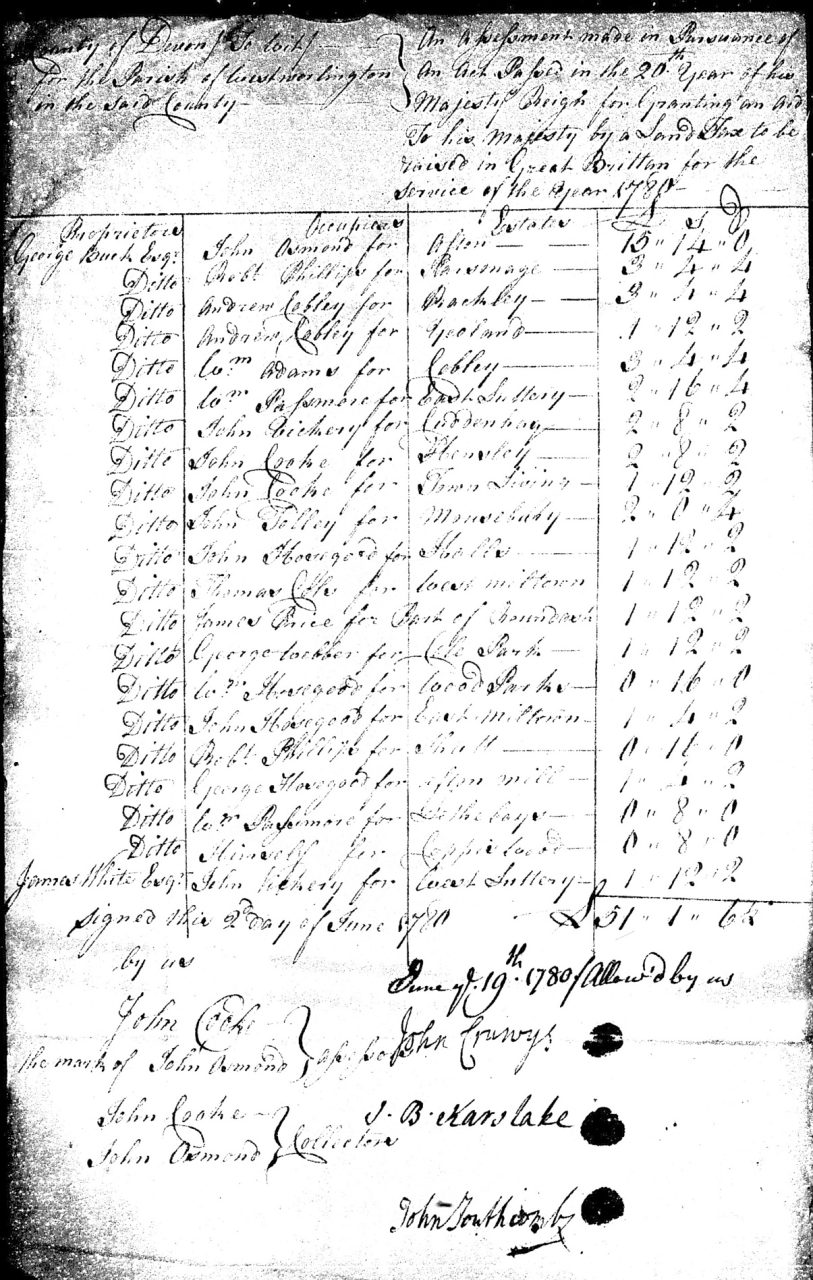 County of Devon/ To Wit/
for the Parish of Westworlington
in the Said County
An Assessment made in Pursuance of
An Act Passed in the 20th Year of his
Majestys Reign for Granting an Aid
To his Majesty by a Land Tax to be
raised in Great Brittan for the
Service of the Year 1780
Proprietors Occupiers Estates £ s D
George Buck Esqr John Osmond for Afton 15 " 14 " 0
Ditto Robt Phillips for Parsonage 3 " 4 " 4
Ditto Andrew Cobley for Rackley 3 " 4 " 4
Ditto Andrew Cobley for Yeoland 1 " 12 " 2
Ditto Wm Adams for Cobley 3 " 4 " 4
Ditto Wm Passmore for East Luttery 2 " 16 " 4
Ditto John Vickery for Cuddenhay 2 " 8 " 2
Ditto John Cooke for Hensley 2 " 8 " 2
Ditto John Cooke for Town Living 1 " 12 " 2
Ditto John Tolley for 2 " 0 " 4
Ditto John Hosegood for Halls 1 " 12 " 2
Ditto Thomas Cole for West miltown 1 " 12 " 2
Ditto James Price for Part of 1 " 12 " 2
Ditto George Webber for Cole Park 1 " 12 " 2
Ditto Wm Hosegood for Wood Parks 0 " 16 " 0
Ditto John Hosegood for East Miltown 1 " 4 " 2
Ditto Robt Phillips for Shutt 0 " 16 " 0
Ditto George Hosegood for Afton mill 1 " 4 " 2
Ditto Wm Passmore for 0 " 8 " 0
Ditto Himself for Coppis Wood 0 " 8 " 0
James White Esqr John Vickery for West Luttery 1 " 12 " 2
Signed this 2d day of June 1780 £ 51 " 1 " 6
by us
June ye 19th 1780/ Allow'd by us
John Cooke
the mark of John Osmond } Assessors
John Cruwys
John Cooke
John Osmond } Collectors
J. B. Karslake
John Southcomb